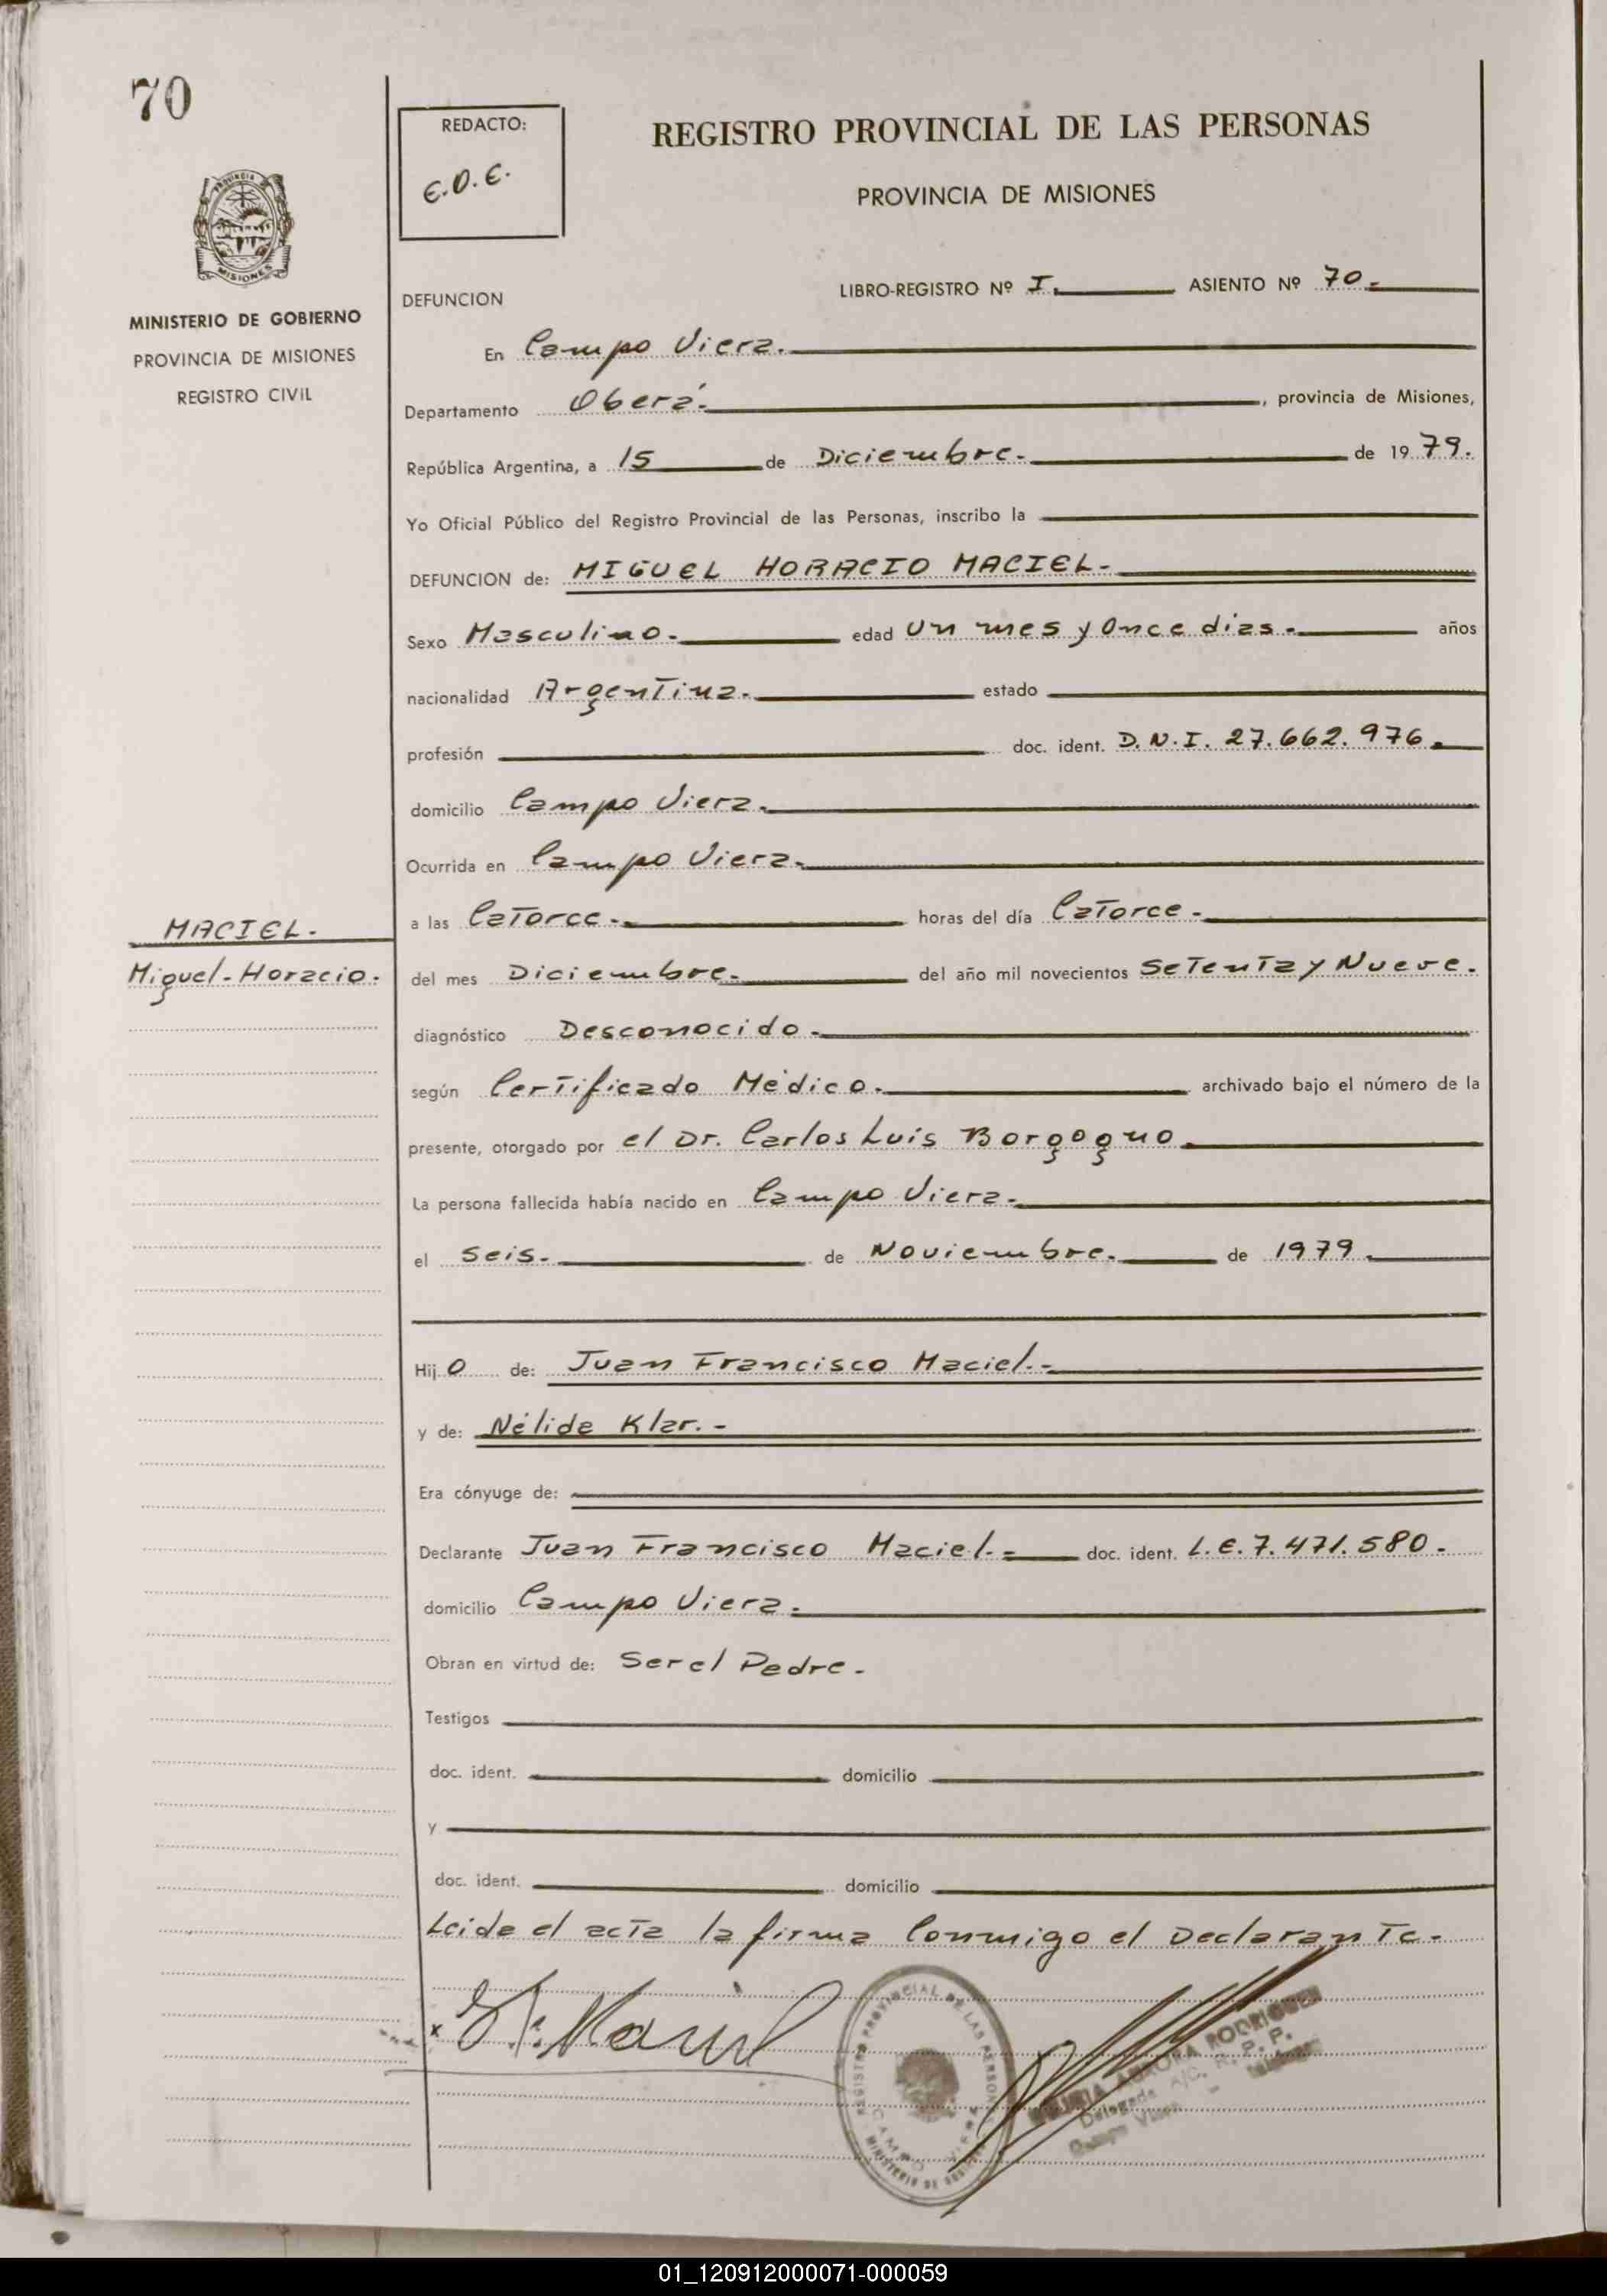 70
REDACTO:
E.D.E.
REGISTRO PROVINCIAL DE LAS PERSONAS
PROVINCIA DE MISIONES
PROVINCIA
MISIONES
MINISTERIO DE GOBIERNO
PROVINCIA DE MISIONES
REGISTRO CIVIL
LIBRO-REGISTRO Nº I. ASIENTO Nº 70.-
DEFUNCION
En Campo Viera.
Departamento Oberá.- , provincia de Misiones,
República Argentina, a 15 de Diciembre.- de 1979.
Yo Oficial Público del Registro Provincial de las Personas, inscribo la
DEFUNCION de: MIGUEL HORACIO MACIEL.-
Sexo Masculino.- edad Un mes y Once dias.- años
nacionalidad Argentina.- estado
profesión doc. ident. D.N.I. 27.662.976.-
domicilio Campo Viera.-
Ocurrida en Campo Viera.-
a las Catorce.- horas del día Catorce.-
MACIEL.-
Miguel-Horacio.
del mes Diciembre.- del año mil novecientos Setenta y Nueve.
diagnóstico Desconocido.-
según Certificado Médico.- archivado bajo el número de la
presente, otorgado por el Dr. Carlos Luis Borgogno.-
La persona fallecida había nacido en Campo Viera.-
el Seis.- de Noviembre.- de 1979.-
Hijo de: Juan Francisco Maciel.-
y de: Nélida Klar.-
Era cónyuge de:
Declarante Juan Francisco Maciel.- doc. ident. L.E. 7.471.580.-
domicilio Campo Viera.-
Obran en virtud de: Ser el Padre.-
Testigos
doc. ident. domicilio
y
doc. ident. domicilio
Leida el acta la firma Conmigo el Declarante.-
x
REGISTRO PROVINCIAL DE LAS PERSONAS
CAMPO VIERA
MINISTERIO DE
AURORA RODRIGUEZ
Delegada A/C. R. P. P.
Campo Viera
01_120912000071-000059